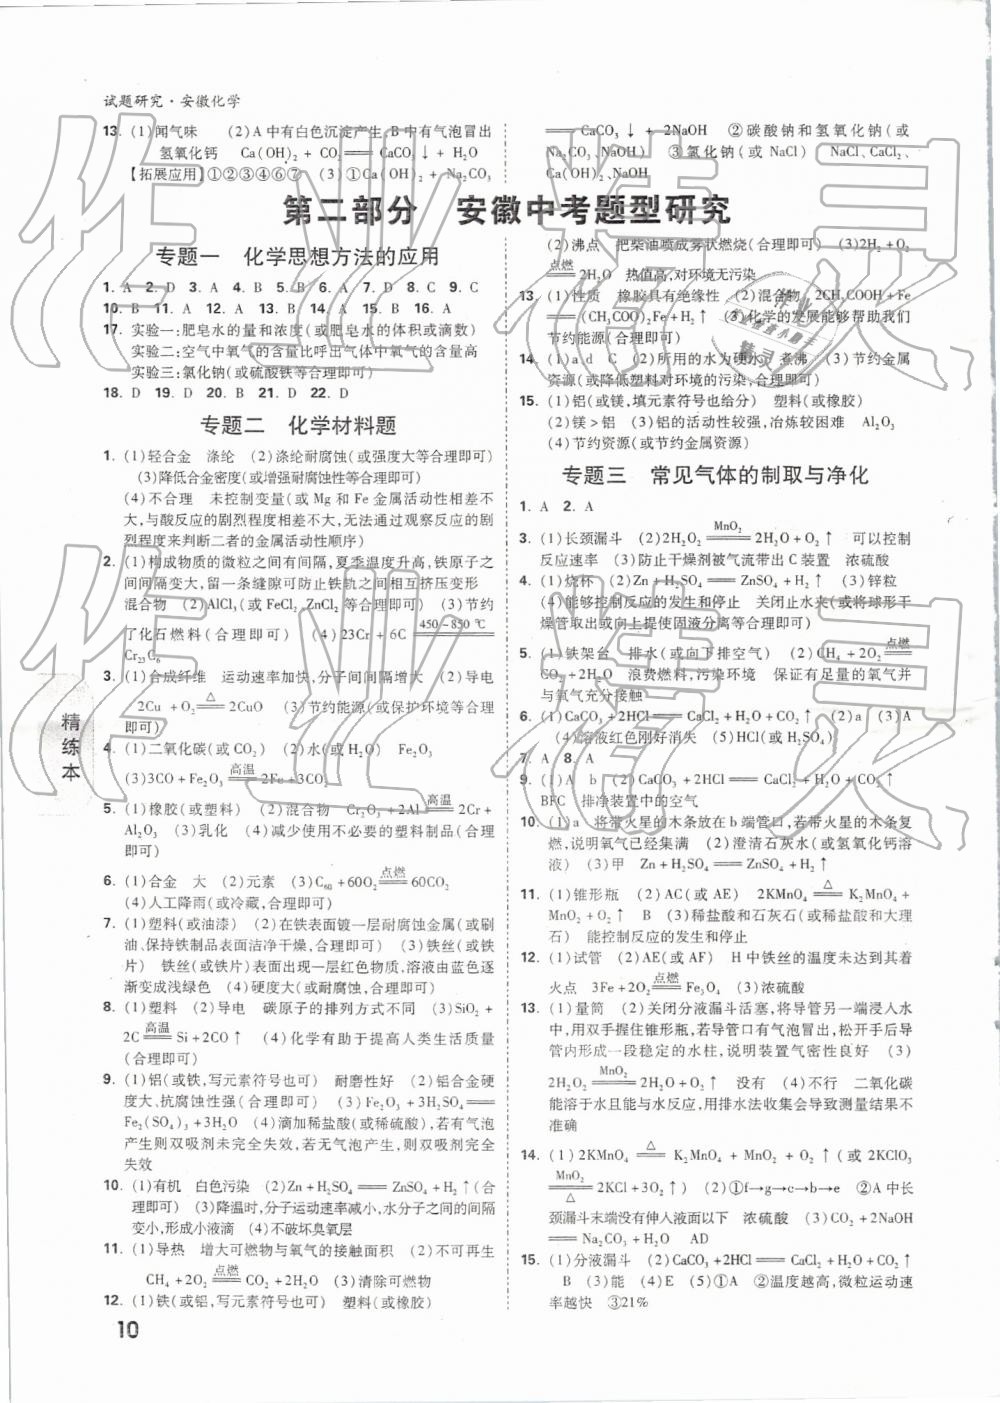 试题研究·安徽化学
13. (1)闻气味 (2)A 中有白色沉淀产生 B 中有气泡冒出
氢氧化钙 Ca(OH)₂ + CO₂═══CaCO₃↓ + H₂O
【拓展应用】①②③④⑥⑦ (3)①Ca(OH)₂ + Na₂CO₃
═══CaCO₃↓ + 2NaOH ②碳酸钠和氢氧化钠(或
Na₂CO₃、NaOH) ③氯化钠(或 NaCl) NaCl、CaCl₂、
Ca(OH)₂、NaOH
第二部分 安徽中考题型研究
专题一 化学思想方法的应用
1. A 2. D 3. A 4. B 5. B 6. A 7. D 8. C 9. C
10. B 11. A 12. A 13. A 14. B 15. B 16. A
17. 实验一:肥皂水的量和浓度(或肥皂水的体积或滴数)
实验二:空气中氧气的含量比呼出气体中氧气的含量高
实验三:氯化钠(或硫酸铁等合理即可)
18. D 19. D 20. B 21. D 22. D
专题二 化学材料题
1. (1)轻合金 涤纶 (2)涤纶耐腐蚀(或强度大等合理即可)
(3)降低合金密度(或增强耐腐蚀性等合理即可)
(4)不合理 未控制变量(或 Mg 和 Fe 金属活动性相差很
大,与酸反应的剧烈程度相差很大,无法通过观察反应的剧
烈程度来判断二者的金属活动性顺序)
2. (1)构成物质的微粒之间有间隔,夏季温度升高,铁原子之
间间隔变大,留一条缝隙可防止铁轨之间相互挤压变形
混合物 (2)AlCl₃(或 FeCl₂、ZnCl₂ 等合理即可) (3)节约
了化石燃料(合理即可) (4)23Cr + 6C ═450~850 ℃═
Cr₂₃C₆
3. (1)合成纤维 运动速率加快,分子间间隔增大 (2)导电
2Cu + O₂═△═2CuO (3)节约能源(或保护环境等合理
即可)
4. (1)二氧化碳(或 CO₂) (2)水(或 H₂O) Fe₂O₃
(3)3CO + Fe₂O₃═高温═2Fe + 3CO₂
5. (1)橡胶(或塑料) (2)混合物 Cr₂O₃ + 2Al═高温═2Cr +
Al₂O₃ (3)乳化 (4)减少使用不必要的塑料制品(合理
即可)
6. (1)合金 大 (2)元素 (3)C₆₀ + 60O₂═点燃═60CO₂
(4)人工降雨(或冷藏,合理即可)
7. (1)塑料(或油漆) (2)在铁表面镀一层耐腐蚀金属(或刷
油、保持铁制品表面洁净干燥,合理即可) (3)铁丝(或铁
片) 铁丝(或铁片)表面出现一层红色物质,溶液由蓝色逐
渐变成浅绿色 (4)硬度大(或耐腐蚀,合理即可)
8. (1)塑料 (2)导电 碳原子的排列方式不同 (3)SiO₂ +
2C═高温═Si + 2CO↑ (4)化学有助于提高人类生活质量
(合理即可)
9. (1)铝(或铁,写元素符号也可) 耐磨性好 (2)铝合金硬
度大、抗腐蚀性强(合理即可) (3)Fe₂O₃ + 3H₂SO₄═══
Fe₂(SO₄)₃ + 3H₂O (4)滴加稀盐酸(或稀硫酸),若有气泡
产生则双吸剂未完全失效,若无气泡产生,则双吸剂完全
失效
10. (1)有机 白色污染 (2)Zn + H₂SO₄═══ZnSO₄ + H₂↑(合
理即可) (3)降温时,分子运动速率减小,水分子之间的间隔
变小,形成小液滴 (4)不破坏臭氧层
11. (1)导热 增大可燃物与氧气的接触面积 (2)不可再生
CH₄ + 2O₂═点燃═CO₂ + 2H₂O (3)清除可燃物
12. (1)铁(或铝,写元素符号也可) 塑料(或橡胶)
(2)沸点 把柴油喷成雾状燃烧(合理即可) (3)2H₂ + O₂
═点燃═2H₂O 热值高,对环境无污染
13. (1)性质 橡胶具有绝缘性 (2)混合物 2CH₃COOH + Fe
═══(CH₃COO)₂Fe + H₂↑ (3)化学的发展能够帮助我们
节约能源(合理即可)
14. (1)a d C (2)所用的水为硬水 煮沸 (3)节约金属
资源(或降低塑料对环境的污染,合理即可)
15. (1)铝(或镁,填元素符号也给分) 塑料(或橡胶)
(2)镁>铝 (3)铝的活动性较强,冶炼较困难 Al₂O₃
(4)节约资源(或节约金属资源)
专题三 常见气体的制取与净化
1. A 2. A
3. (1)长颈漏斗 (2)2H₂O₂═MnO₂═2H₂O + O₂↑ 可以控制
反应速率 (3)防止干燥剂被气流带出 C 装置 浓硫酸
4. (1)烧杯 (2)Zn + H₂SO₄═══ZnSO₄ + H₂↑ (3)锌粒
(4)能够控制反应的发生和停止 关闭止水夹(或将球形干
燥管取出或向上提使固液分离等合理即可)
5. (1)铁架台 排水(或向下排空气) (2)CH₄ + 2O₂═点燃═
CO₂ + 2H₂O 浪费燃料,污染环境 保证有足量的氧气并
与氧气充分接触
6. (1)CaCO₃ + 2HCl═══CaCl₂ + H₂O + CO₂↑ (2)a (3)A
(4)溶液红色刚好消失 (5)HCl(或 H₂SO₄)
7. A 8. A
9. (1)A b (2)CaCO₃ + 2HCl═══CaCl₂ + H₂O + CO₂↑
BFC 排净装置中的空气
10. (1)a 将带火星的木条放在 b 端管口,若带火星的木条复
燃,说明氧气已经集满 (2)澄清石灰水(或氢氧化钙溶
液) (3)甲 Zn + H₂SO₄═══ZnSO₄ + H₂↑
11. (1)锥形瓶 (2)AC(或 AE) 2KMnO₄═△═K₂MnO₄ +
MnO₂ + O₂↑ B (3)稀盐酸和石灰石(或稀盐酸和大理
石) 能控制反应的发生和停止
12. (1)试管 (2)AE(或 AF) H 中铁丝的温度未达到其着
火点 3Fe + 2O₂═点燃═Fe₃O₄ (3)浓硫酸
13. (1)量筒 (2)关闭分液漏斗活塞,将导管另一端浸入水
中,用双手握住锥形瓶,若导管口有气泡冒出,松开手后导
管内形成一段稳定的水柱,说明装置气密性良好 (3)
2H₂O₂═MnO₂═2H₂O + O₂↑ 没有 (4)不行 二氧化碳
能溶于水且能与水反应,用排水法收集会导致测量结果不
准确
14. (1)2KMnO₄═△═K₂MnO₄ + MnO₂ + O₂↑(或 2KClO₃
═MnO₂/△═2KCl + 3O₂↑) (2)①f→g→c→b→e ②A 中长
颈漏斗末端没有伸入液面以下 浓硫酸 (3)CO₂ + 2NaOH
═══Na₂CO₃ + H₂O AD
15. (1)分液漏斗 (2)CaCO₃ + 2HCl═══CaCl₂ + H₂O + CO₂↑
B (3)能 (4)E (5)①A ②温度越高,微粒运动速
率越快 ③21%
精练本
10
作业精灵
作业精灵